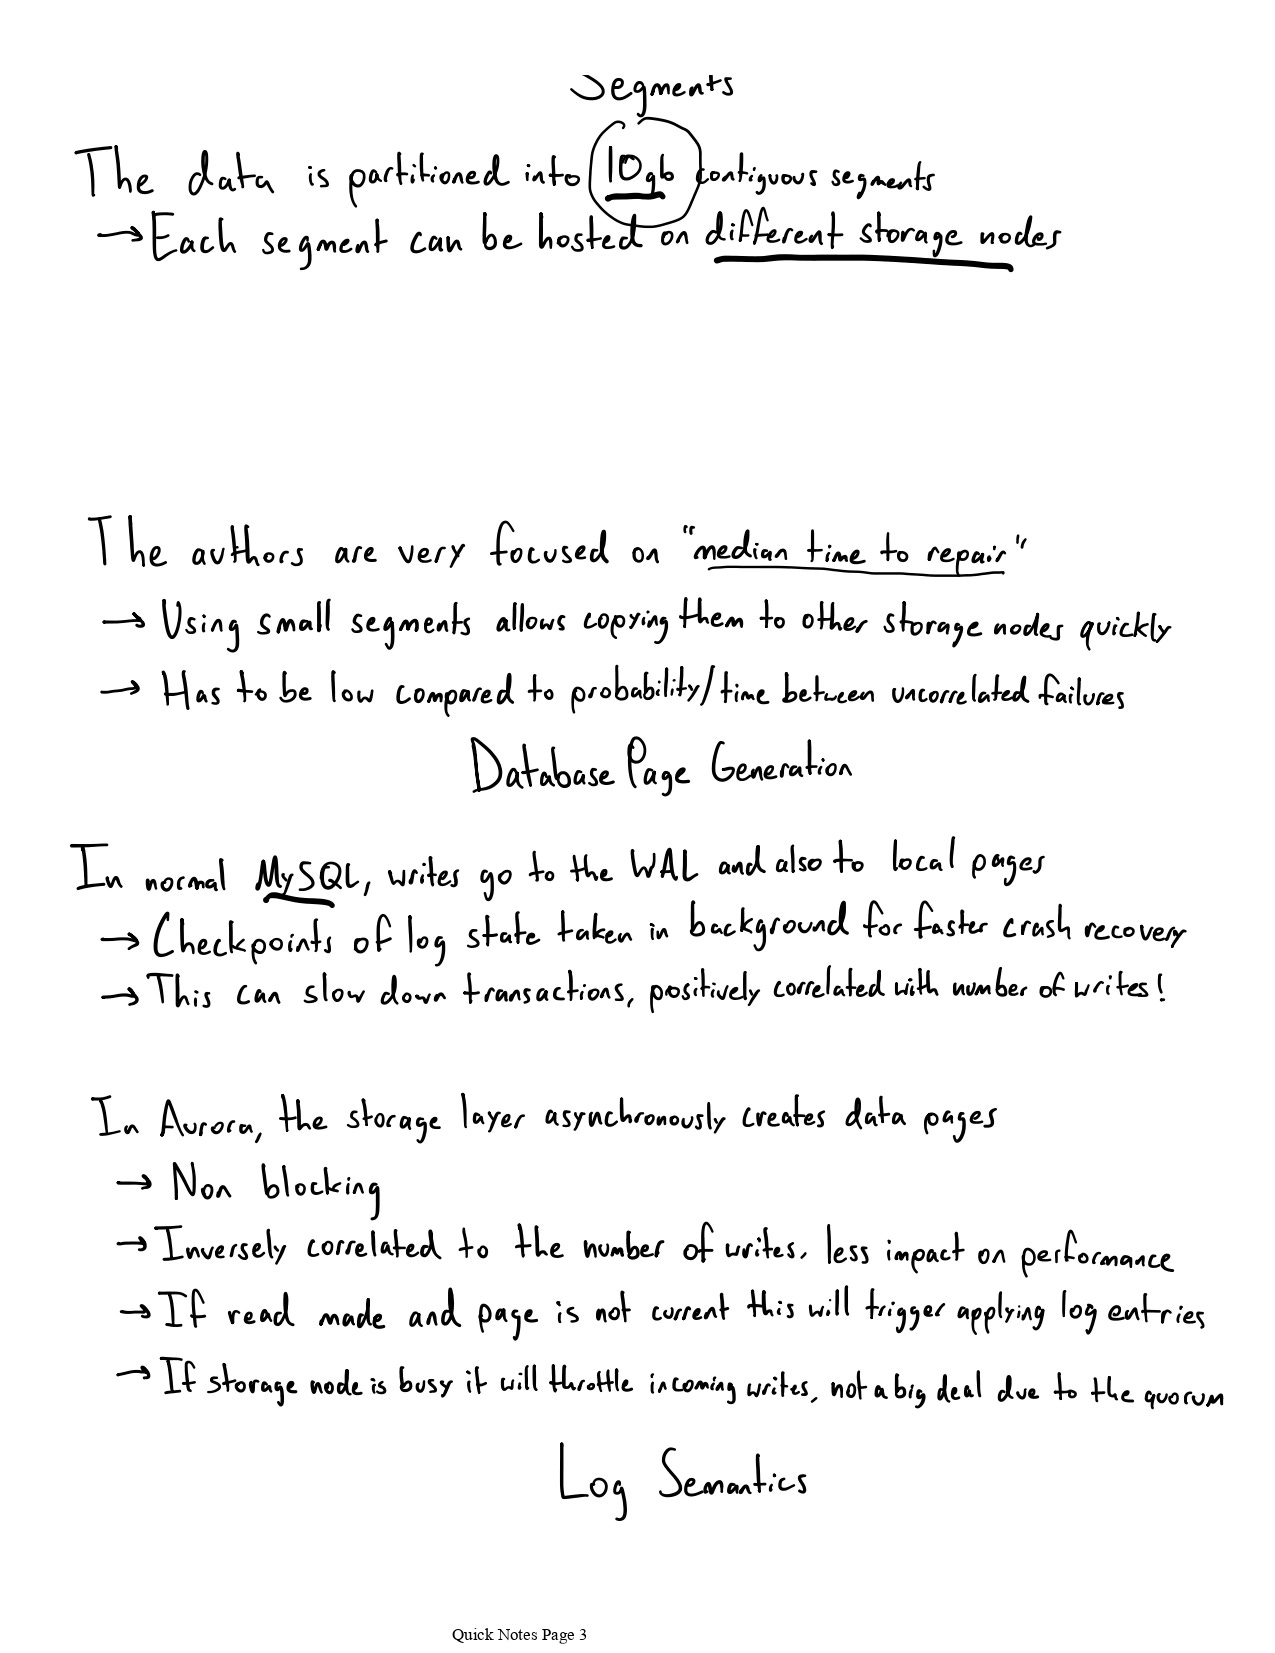 Segments
The data is partitioned into 10gb contiguous segments
→ Each segment can be hosted on different storage nodes
The authors are very focused on "median time to repair"
→ Using small segments allows copying them to other storage nodes quickly
→ Has to be low compared to probability/time between uncorrelated failures
Database Page Generation
In normal MySQL, writes go to the WAL and also to local pages
→ Checkpoints of log state taken in background for faster crash recovery
→ This can slow down transactions, positively correlated with number of writes!
In Aurora, the storage layer asynchronously creates data pages
→ Non blocking
→ Inversely correlated to the number of writes. less impact on performance
→ If read made and page is not current this will trigger applying log entries
→ If storage node is busy it will throttle incoming writes, not a big deal due to the quorum
Log Semantics
Quick Notes Page 3